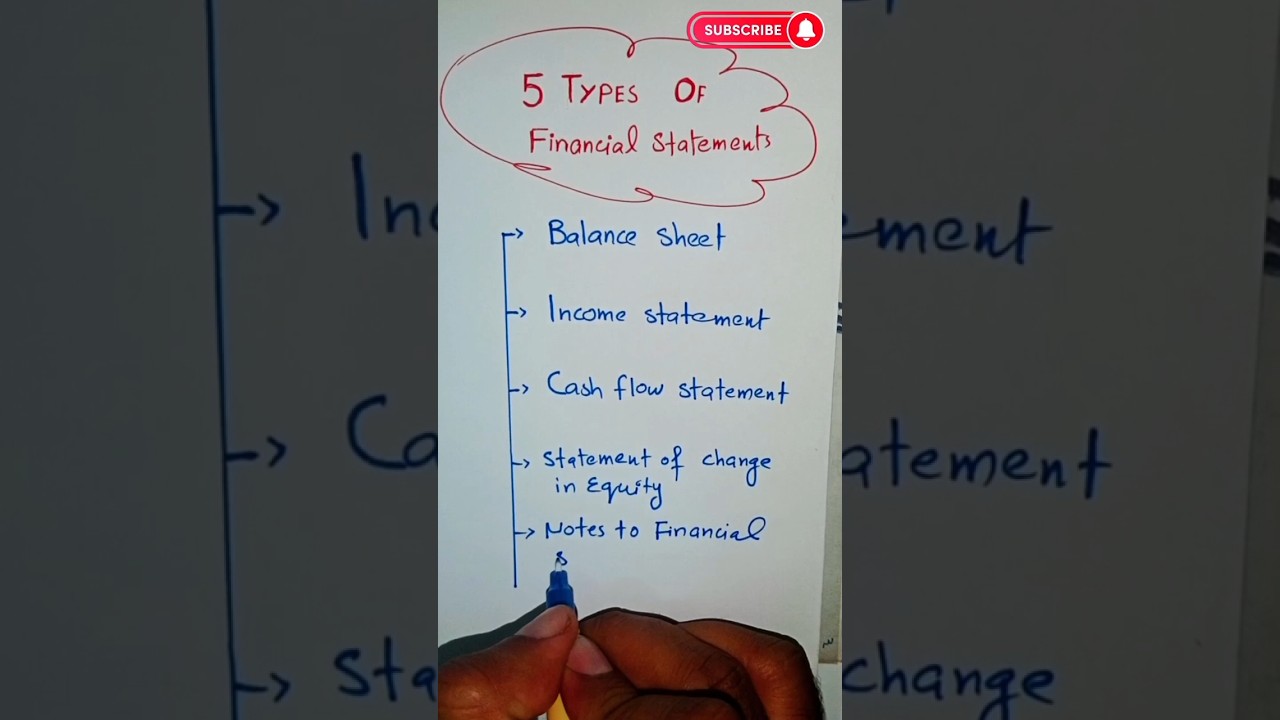 SUBSCRIBE
5 TYPES OF
Financial Statements
Balance sheet
Income statement
Cash flow statement
Statement of change
in Equity
Notes to Financial
s